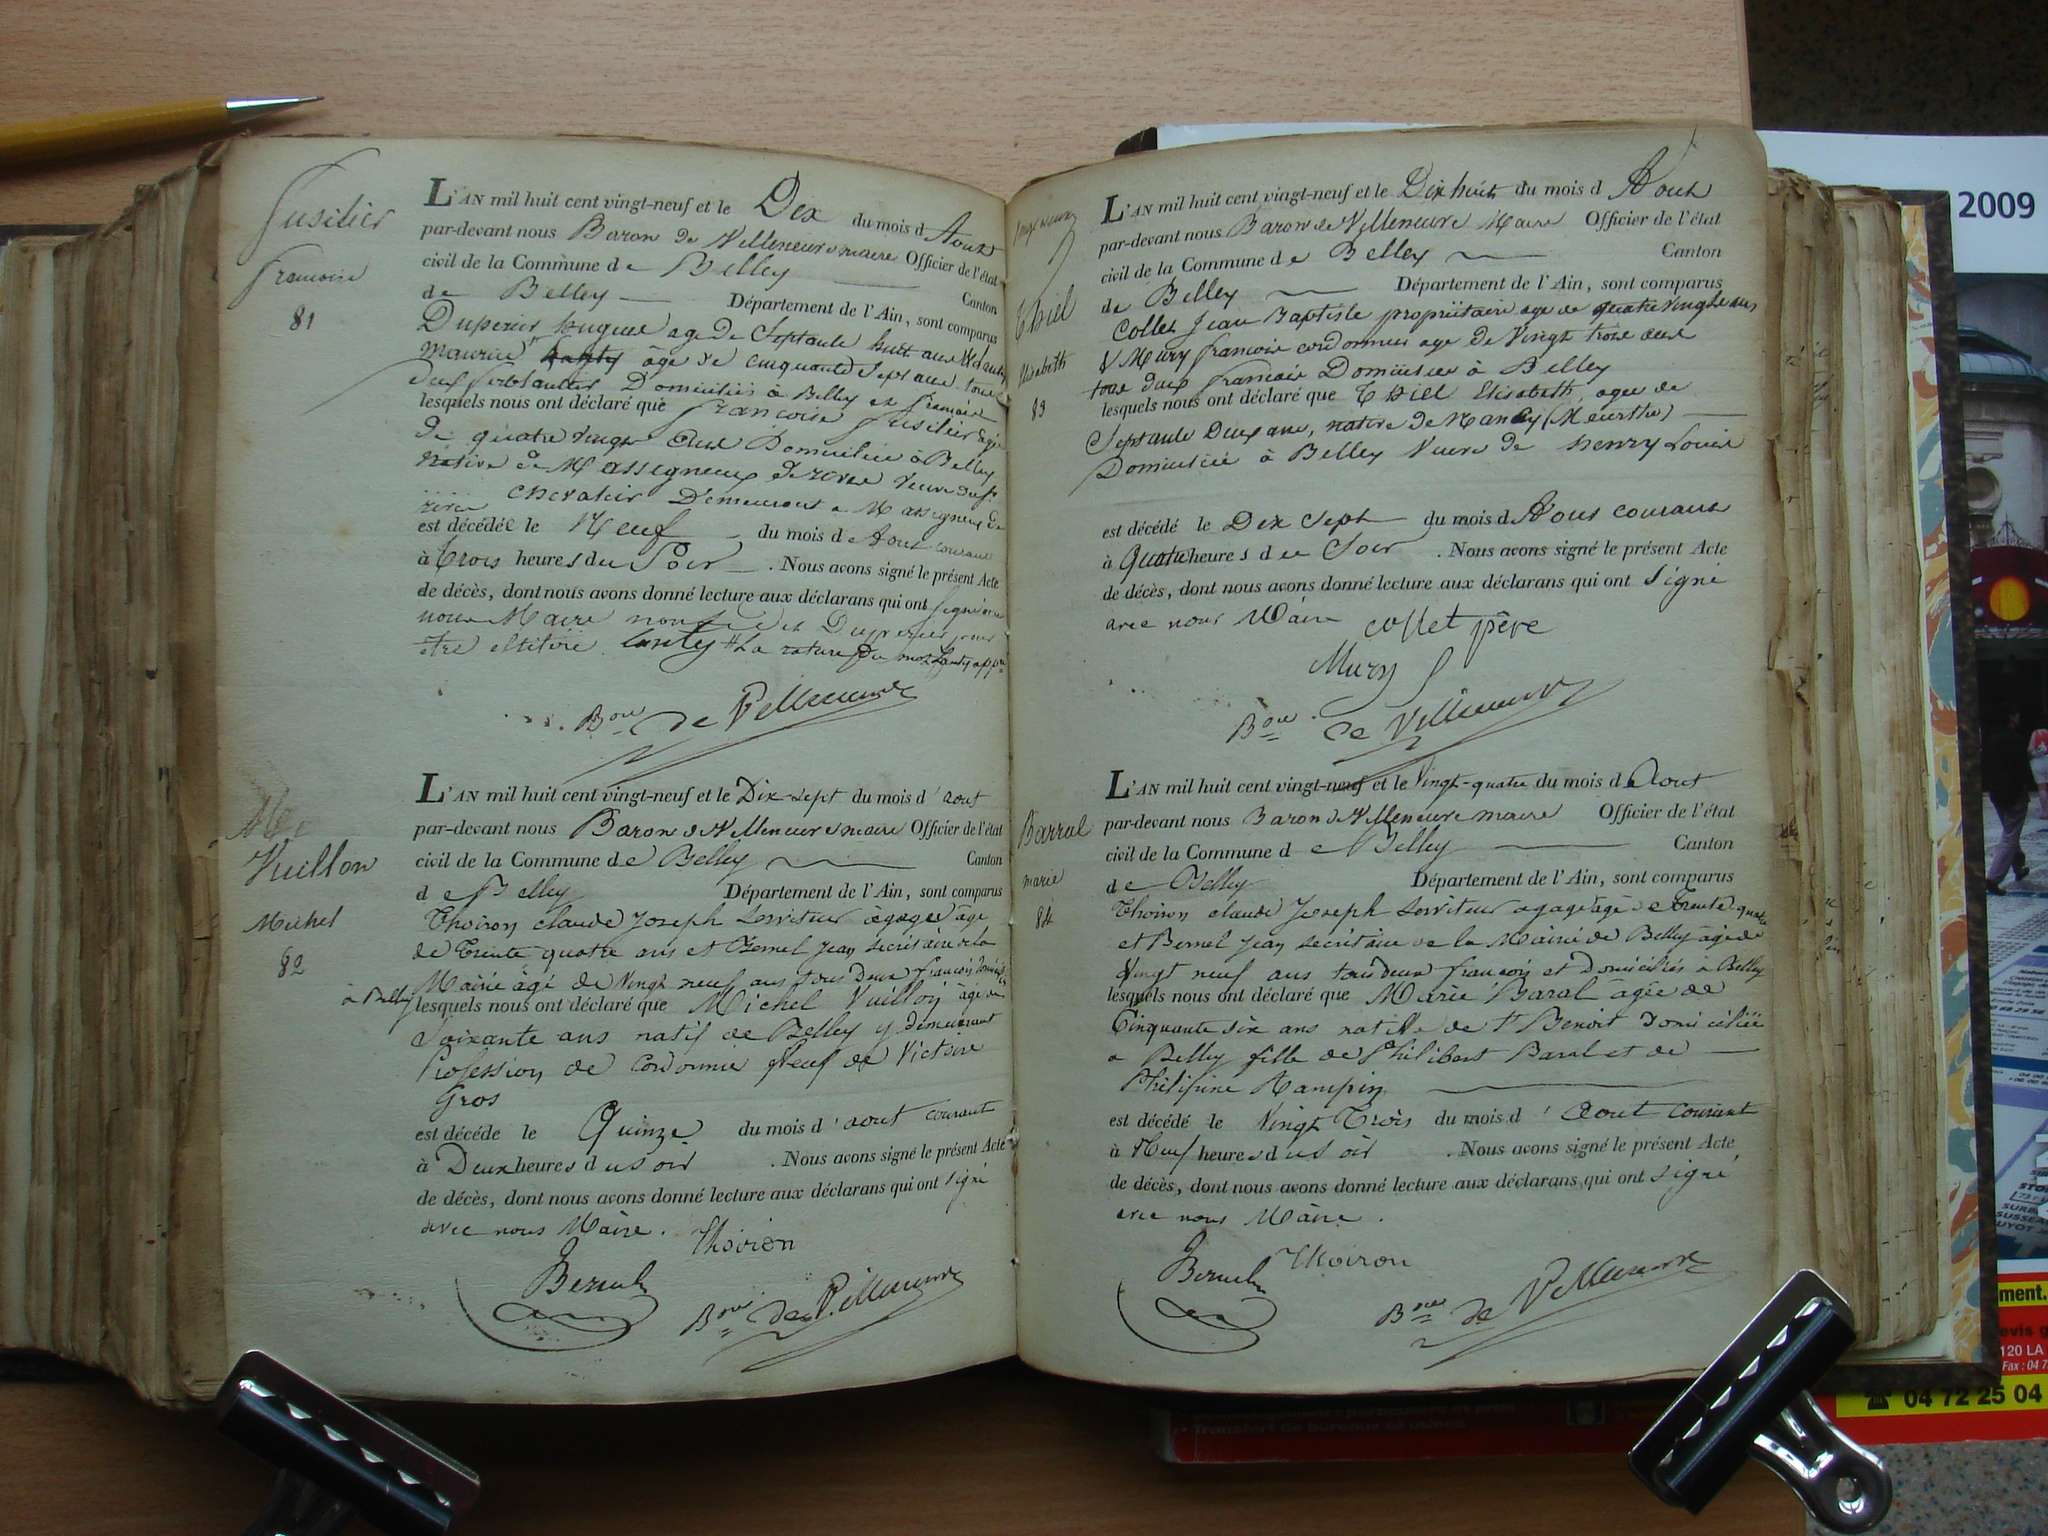 Fusilier
Françoise
81
L'AN mil huit cent vingt-neuf et le Dix du mois d'Aout
par-devant nous Baron de Villeneuve maire Officier de l'état
civil de la Commune de Belley Canton
de Belley Département de l'Ain, sont comparus
Duperier hugue age de Septante huit ans
maurice âge de cinquante Sept ans tous
deux Domiciliés à Belley et français
lesquels nous ont déclaré que francoise fusilier agé
de quatre vingt ans Domiciliée à Belley
native de Massegneux de rives veuve
chevalier Demeurant a Massigneu de
est décédée le Neuf du mois de Aout courant
à trois heures du Soir. Nous avons signé le présent Acte
de décès, dont nous avons donné lecture aux déclarans qui ont signé avec
nous Maire non ledit Duperier pour
être illitéré. Lanty la rature du mot Lanty
Bon de Villeneuve
Vuillon
Michel
82
L'AN mil huit cent vingt-neuf et le Dix-sept du mois d'aout
par-devant nous Baron de Villeneuve maire Officier de l'état
civil de la Commune de Belley Canton
de Belley Département de l'Ain, sont comparus
Thoiron claude Joseph Serviteur agagé âge
de trente quatre ans et Bernel Jean secrétaire de la
Mairie âgé de vingt neuf ans tous Deux françois domiciliés
à Belley lesquels nous ont déclaré que Michel Vuillon âgé de
Soixante ans natif de Belley y demeurant
Profession de Cordonnie Veuf de Victoire
Gros
est décéde le Quinze du mois d'aout courant
à Deux heures du soir. Nous avons signé le présent Acte
de décès, dont nous avons donné lecture aux déclarans qui ont signé
avec nous Maire. Thoiron
Bernel
Bon de Villeneuve
Thiel
Elisabeth
83
L'AN mil huit cent vingt-neuf et le Dix huit du mois d Aout
par-devant nous Baron de Villeneuve Maire Officier de l'état
civil de la Commune de Belley Canton
de Belley Département de l'Ain, sont comparus
Collet Jean Baptiste propriétaire age de quatre vingts ans
& Mury francois cordonnier age de Vingt trois ans
tous deux francais Domiciliés à Belley
lesquels nous ont déclaré que Thiel Elisabeth, agee de
Septante Deux ans, native de Nancy (Meurthe)
Domiciliée à Belley Veuve de henry Louis
est décédé le Dix Sept du mois d Aout courant
à Quatre heures du Soir. Nous avons signé le présent Acte
de décès, dont nous avons donné lecture aux déclarans qui ont signé
avec nous Maire collet père
Mury
Bon de Villeneuve
Barral
marie
84
L'AN mil huit cent vingt-neuf et le Vingt-quatre du mois d'Aout
par-devant nous Baron de Villeneuve maire Officier de l'état
civil de la Commune de Belley Canton
de Belley Département de l'Ain, sont comparus
Thoiron claude Joseph Serviteur agagé âgé de trente quatre
et Bernel Jean secrétaire de la Mairie de Belley âgé de
Vingt neuf ans tous deux françois et domiciliés à Belley
lesquels nous ont déclaré que Marie Baral âgée de
Cinquante six ans native de St Benoit domiciliée
a Belley fille de Philibert Baral et de
Philipine Rampin
est décédé le Vingt Trois du mois d'Aout courant
à Neuf heures du soir. Nous avons signé le présent Acte
de décès, dont nous avons donné lecture aux déclarans qui ont signé
avec nous Maire.
Bernel Thoiron
Bon de Villeneuve
2009
04 72 25 04